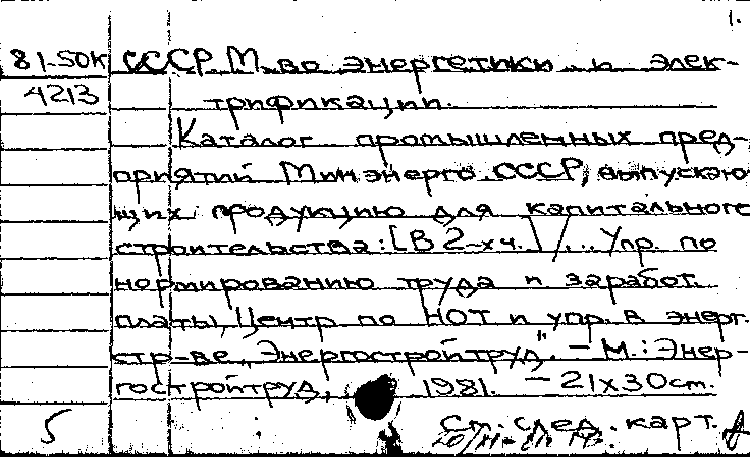 1.
81-50К СССР. М-во энергетики и элек-
4213 трификации.
Каталог промышленных пред-
приятий Минэнерго СССР, выпускаю
щих продукцию для капитального
строительства: [В 2-х ч.] /... Упр. по
нормированию труда и заработ.
платы, Центр по НОТ и упр. в энерг.
стр-ве „Энергостройтруд". – М.: Энер-
гостройтруд, 1981. – 21х30см.
5 См. след. карт.